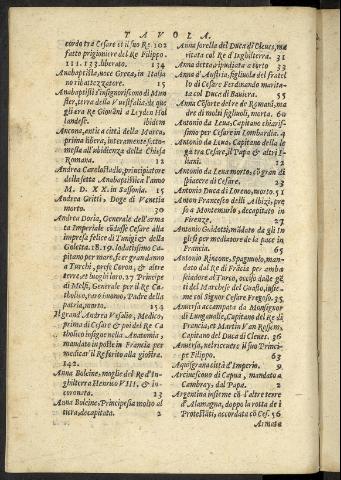 TAVOLA.
cordo tra Cesare et il suo Re. 102
fatto prigioniere del Re Filippo.
111. 133. liberato. 134
Anabaptista, uoce Greca, in Italia
no ribattezzatore. 15
Anabaptisti s'insignoriscono di Mun
ster, terra della Vuesfalia: et que
gli era Re Giouāni a Leyden Hol
landese. ibidem
Ancona, antica città della Marca,
prima libera, interamēte sotto-
messa all'ubidienza della Chiesa
Romana. 12
Andrea Caroloctadio, principiatore
della setta Anabaptistica l'anno
M. D. XX. in Sassonia. 15
Andrea Gritti, Doge di Venetia
morto. 30
Andrea Doria, Generale dell'arma
ta Imperiale cōdusse Cesare alla
impresa felice di Tunigi & della
Coletta. 18. 19. lodatissimo Ca-
pitano per mare, fece gran danno
a Turchi, prese Coron, & altre
terre, et luoghi loro. 27 Principe
di Melfi, Generale per il Re Ca-
tholico, parō inomo, Padre della
patria, morto. 154
Il grand'Andrea Vasalio, Medico,
prima di Cesare & poi del Re Ca
tholico insegne nella Anatomia,
mandato in poste in Francia per
medicar il Re ferito alla giostra.
142.
Anna Bolcine, moglie del Re d'In-
ghilterra Henrico VIII, & in-
coronata. 23
Anna Bolcine, Principessa molto al
tura, decapitata. 2
Anna sorella del Duca di Cleues, ma
ritata col Re d'Inghilterra. 31
Anna detta, ripudiata a torto 33
Anna d'Austria, figliuola del fratel
lo di Cesare Ferdinando marita-
ta col Duca di Bauiera. 55
Anna Cōsorte del re de Romāni, ma
dre di molti figliuoli, morta. 60
Antonio da Leua, Capitano chiaris-
simo per Cesare in Lombardia. 4
Antonio da Leua, Capitano della le
ga tra Cesare, il Papa & altri I-
taliani. 12
Antonio da Leua morto, cō gran di
spiacere di Cesare. 23
Antonio Duca di Loreno, morto. 51
Antonio Francesco delli Albizi, pre
so a Montemurlo, decapitato in
Firenze. 27
Antonio Guidotti, mādato da gli In
glesi per mediatore de la pace in
Francia. 65
Antonio Rincone, Spagniuolo, man-
dato dal Re di Frācia per amba
sciadore al Turco, occiso dalle gē
ti del Marchese del Guasto, insie-
me col Signor Cesare Fregoso. 35
Anuersa accampata da Monsignor
di Longeualle, Capitano del Re di
Francia, et Martin Van Rossem,
Capitano del Duca di Cleues. 36
Anuersa, nel riceuere il suo Princi-
pe Filippo. 63
Aquisgrana città d'Imperio. 9
Arciuescouo di Capua, mandato a
Cambray, dal Papa. 2
Argentina insieme cō l'altre terre
d'Alamagna, doppo la rotta de i
Protestāti, accordata cō Ces. 56
Armata